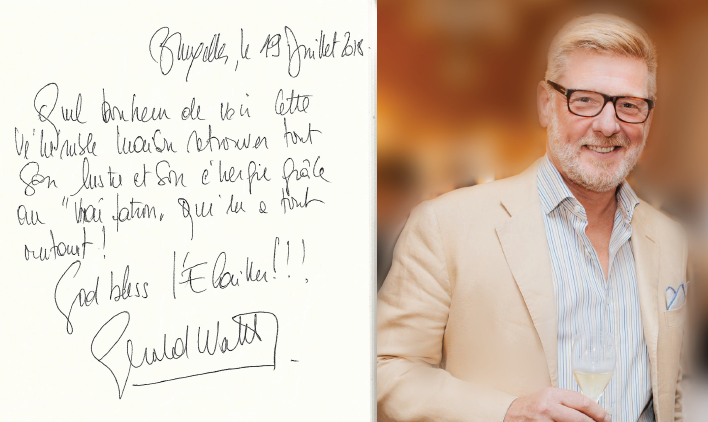 Bruxelles, le 19 Juillet 2018.
Quel bonheur de voir cette
vénérable maison retrouver tout
son lustre et son énergie grâce
au "Vrai patron, qui lu a tout
autant!
God bless l'Écailler!!!
Gerald Watelet